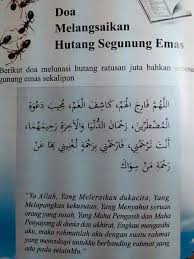 Doa
Melangsaikan
Hutang Segunung Emas
Berikut doa melunasi hutang ratusan juta bahkan sebesar
gunung emas sekalipun
اَللّٰهُمَّ فَارِجَ الْهَمِّ، كَاشِفَ الْغَمِّ، مُجِيْبَ دَعْوَةِ
الْمُضْطَرِّيْنَ، رَحْمَانَ الدُّنْيَا وَالْآخِرَةِ وَرَحِيْمَهُمَا،
أَنْتَ تَرْحَمُنِيْ، فَارْحَمْنِيْ بِرَحْمَةٍ تُغْنِيْنِيْ بِهَا عَنْ
رَحْمَةِ مَنْ سِوَاكَ
"Ya Allah, Yang Meleraikan dukacita, Yang
Melapangkan kekusutan, Yang Menyahut seruan
orang yang susah, Yang Maha Pengasih dan Maha
Penyayang di dunia dan akhirat, Engkau mengasihi
aku, maka rahmatilah aku dengan suatu rahmat
yang mencukupi untukku berbanding rahmat yang
ada pada selainMu."